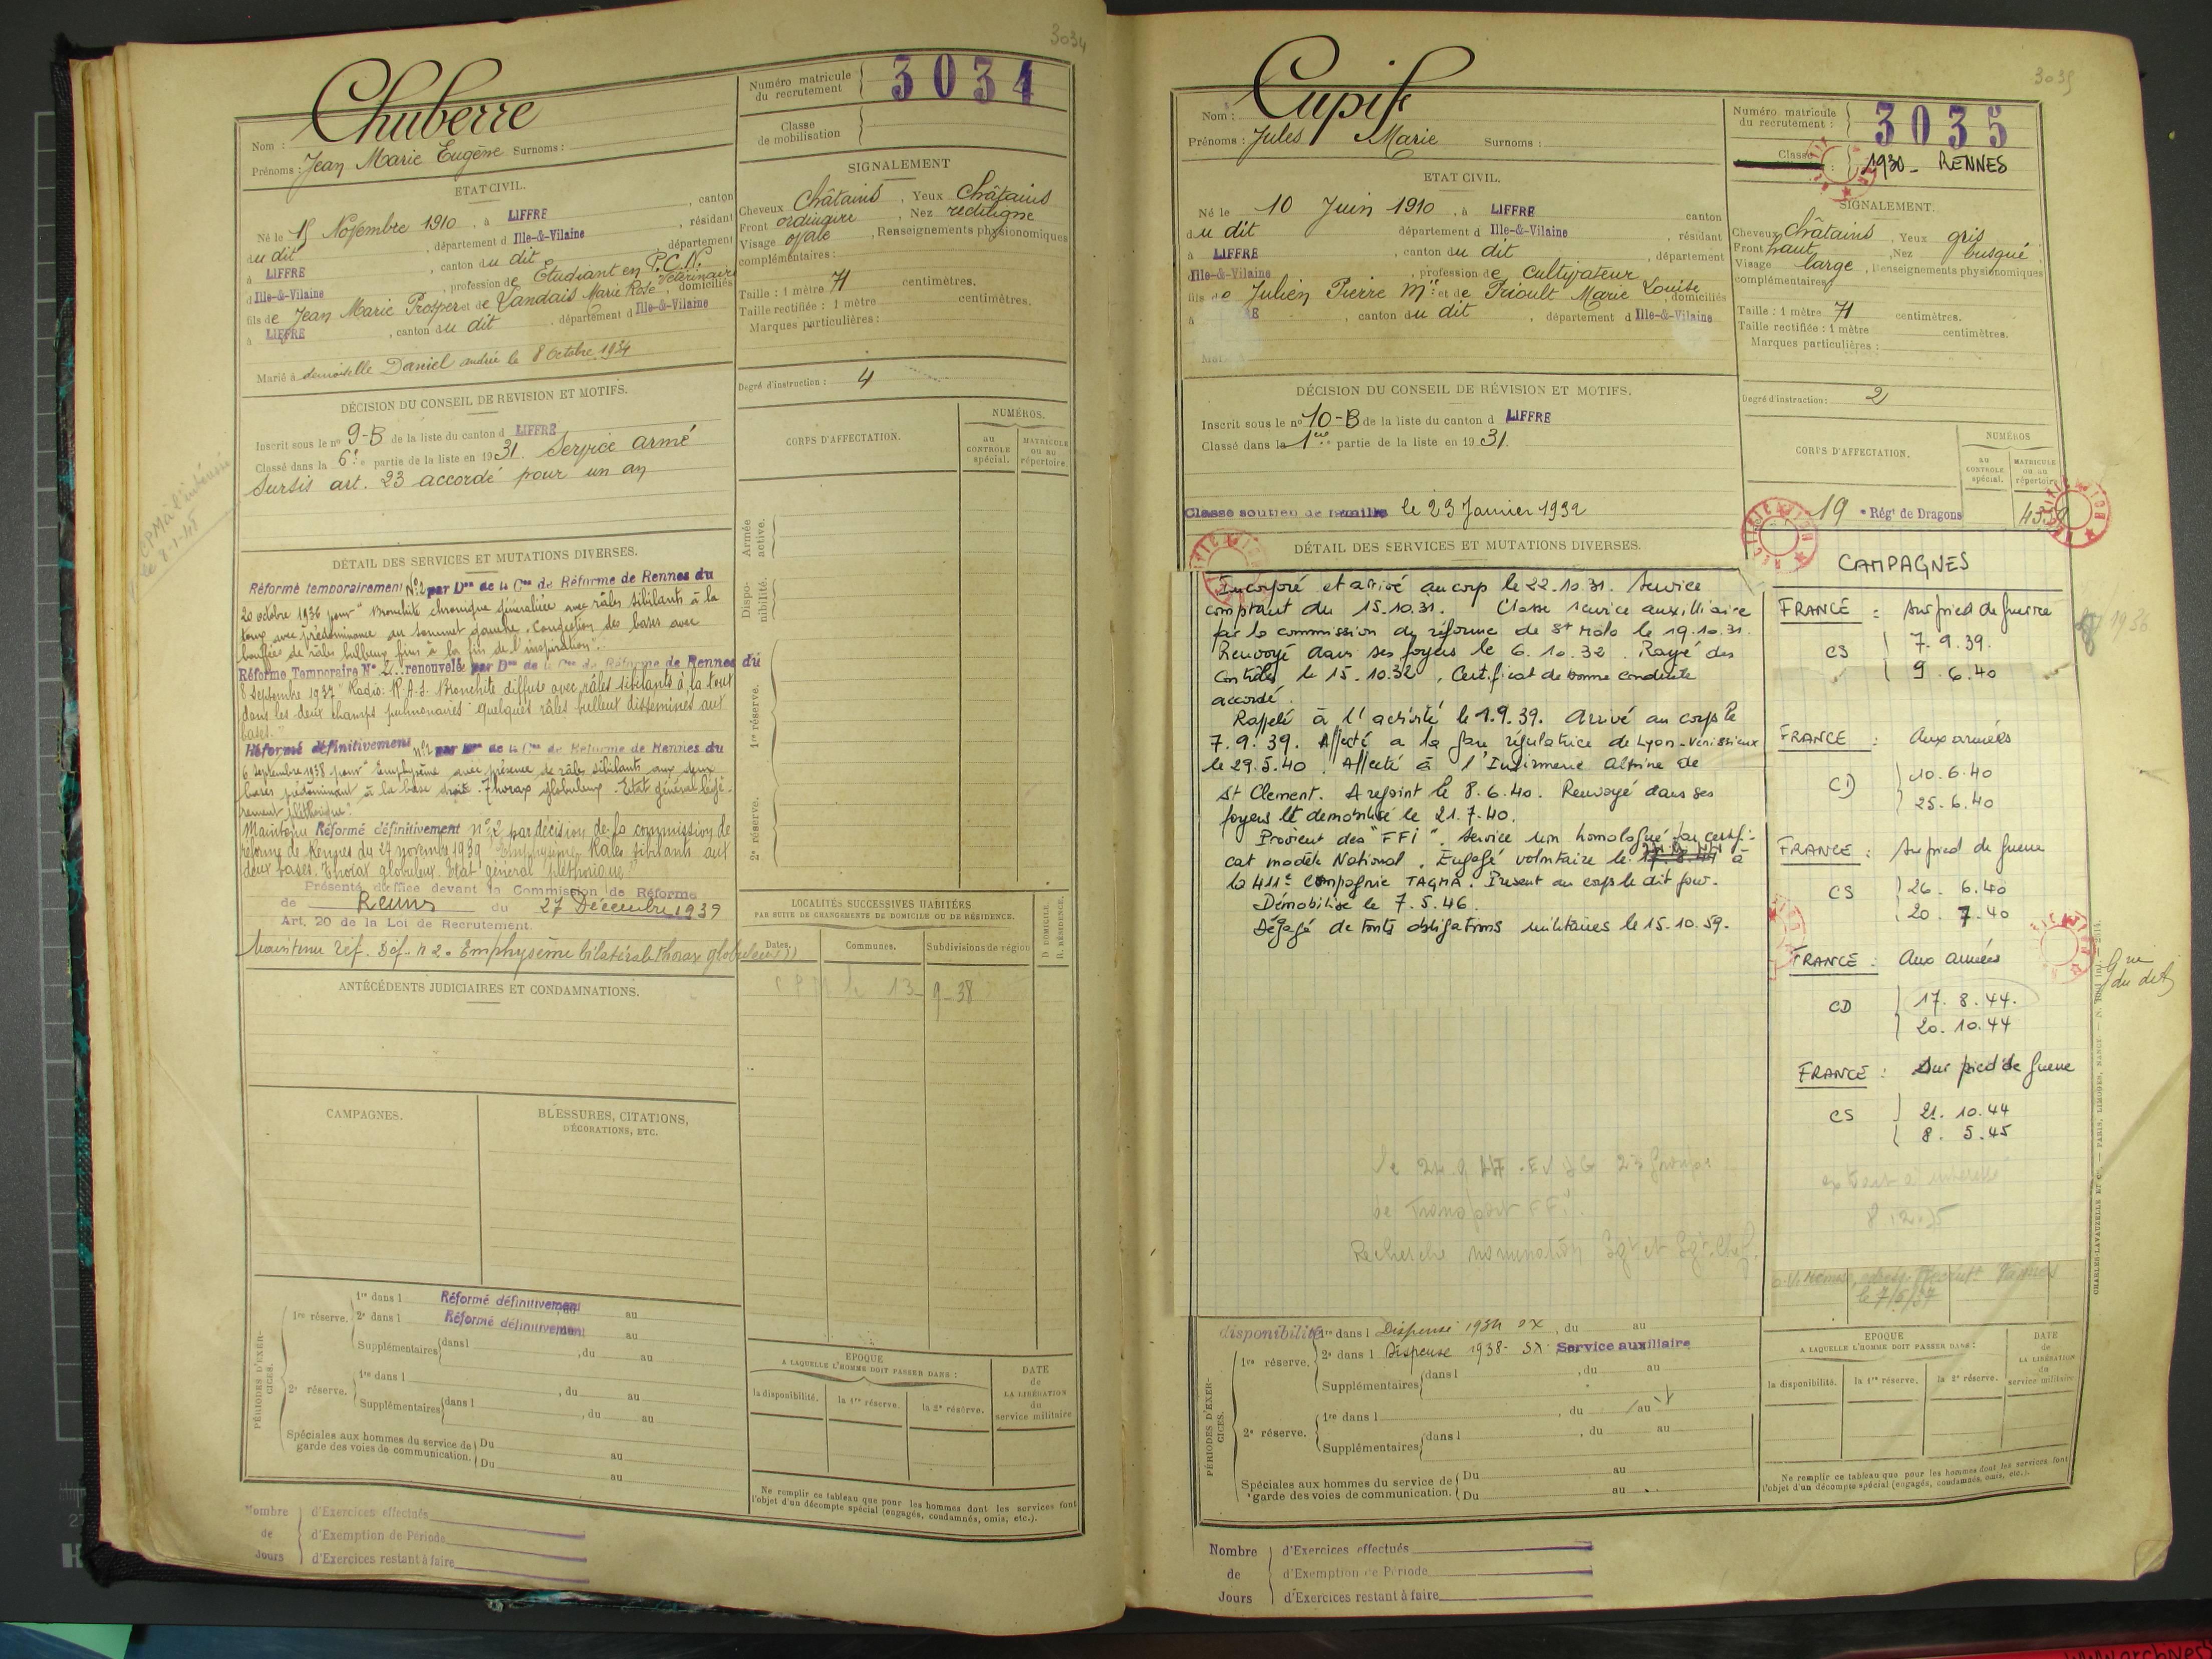 3034
Chuberre
Nom :
Prénoms : Jean Marie Eugène Surnoms :
Numéro matricule du recrutement 3034
Classe de mobilisation
ETAT CIVIL.
Né le 15 Novembre 1910, à LIFFRE, canton
du dit, département d Ille-&-Vilaine, résidant
à LIFFRE, canton du dit, département
d Ille-&-Vilaine, profession de Etudiant en P.C.N. Vétérinaire
fils de Jean Marie Prosper et de Landais Marie Rose, domiciliés
à LIFFRE, canton du dit, département d Ille-&-Vilaine
Marié à demoiselle Daniel andrée le 8 Octobre 1934
SIGNALEMENT
Cheveux Châtains, Yeux Châtains
Front ordinaire, Nez rectiligne
Visage ovale, Renseignements physionomiques
complémentaires :
Taille : 1 mètre 71 centimètres.
Taille rectifiée : 1 mètre centimètres.
Marques particulières :
Degré d'instruction : 4
DÉCISION DU CONSEIL DE REVISION ET MOTIFS.
Inscrit sous le nº 9-B de la liste du canton d LIFFRE
Classé dans la 6e partie de la liste en 1931. Service armé
Sursis art. 23 accordé pour un an
CPM à l'intéressé
le 8-1-45
CORPS D'AFFECTATION.
NUMÉROS.
au CONTROLE spécial.
MATRICULE ou au répertoire
Armée active.
Disponibilité.
1re réserve.
2e réserve.
DÉTAIL DES SERVICES ET MUTATIONS DIVERSES.
Réformé temporairement Nº2 par Don de la Con de Réforme de Rennes du
20 octobre 1936 pour "Bronchite chronique généralisée avec râles sibilants à la
toux avec prédominance au sommet gauche. Congestion des bases avec
bouffées de râles bulleux fins à la fin de l'inspiration".
Réforme Temporaire Nº 2 renouvelée par Don de la Con de Réforme de Rennes du
8 Septembre 1937 "Radio: R.A.S. Bronchite diffuse avec râles sibilants à la toux
dans les deux champs pulmonaires quelques râles bulleux disséminés aux
bases."
Réformé définitivement nº2 par Don de la Con de Réforme de Rennes du
6 Septembre 1938 pour "Emphysème avec présence de râles sibilants aux deux
bases prédominant à la base droite. Thorax globuleux. Etat général légè-
rement pléthorique".
Maintenu Réformé définitivement nº2 par décision de la commission de
réforme de Rennes du 29 novembre 1939 "Emphysème Rales sibilants aux
deux bases. Thorax globuleux. Etat général pléthorique"
Présenté d'office devant la Commission de Réforme
de Rennes du 27 Décembre 1939
Art. 20 de la Loi de Recrutement.
Maintenu réf. Déf. n 2. Emphysème bilatéral thorax globuleux
ANTÉCÉDENTS JUDICIAIRES ET CONDAMNATIONS.
LOCALITÉS SUCCESSIVES HABITÉES
PAR SUITE DE CHANGEMENTS DE DOMICILE OU DE RÉSIDENCE.
Dates. Communes. Subdivisions de région D. DOMICILE. R. RÉSIDENCE.
CPM le 13-9-38
CAMPAGNES.
BLESSURES, CITATIONS,
DÉCORATIONS, ETC.
PÉRIODES D'EXERCICES.
1re réserve. 1re dans l Réformé définitivement au
2e dans l Réformé définitivement au
Supplémentaires dans l , du au
2e réserve. 1re dans l , du au
Supplémentaires dans l , du au
Spéciales aux hommes du service de Du au
garde des voies de communication. Du au
EPOQUE
A LAQUELLE L'HOMME DOIT PASSER DANS :
la disponibilité. la 1re réserve. la 2e réserve.
DATE de LA LIBÉRATION du service militaire
Ne remplir ce tableau que pour les hommes dont les services font
l'objet d'un décompte spécial (engagés, condamnés, omis, etc.).
Nombre d'Exercices effectués
de d'Exemption de Période
Jours d'Exercices restant à faire
3035
Cupif
Nom :
Prénoms : Jules Marie Surnoms :
Numéro matricule du recrutement : 3035
Classe 1930 - RENNES
ETAT CIVIL.
Né le 10 Juin 1910, à LIFFRE canton
du dit département d Ille-&-Vilaine, résidant
à LIFFRE, canton du dit, département
d Ille-&-Vilaine, profession de Cultivateur
fils de Julien Pierre Mie et de Prioult Marie Louise, domiciliés
à RE, canton du dit, département d Ille-&-Vilaine
SIGNALEMENT.
Cheveux Châtains, Yeux gris
Front haut, Nez busqué
Visage large, Renseignements physionomiques
complémentaires
Taille : 1 mètre 71 centimètres.
Taille rectifiée : 1 mètre centimètres.
Marques particulières :
Degré d'instruction : 2
DÉCISION DU CONSEIL DE RÉVISION ET MOTIFS.
Inscrit sous le nº 10-B de la liste du canton d LIFFRE
Classé dans la 1ere partie de la liste en 1931.
Classé soutien de famille le 23 Janvier 1932
CORPS D'AFFECTATION.
NUMÉROS
au CONTROLE spécial.
MATRICULE ou au répertoire
19 e Régt de Dragons
DÉTAIL DES SERVICES ET MUTATIONS DIVERSES.
Incorporé et arrivé au corp le 22.10.31. Service
comptant du 15.10.31. Classe service auxilliaire
par la commission de réforme de St Malo le 19.10.31.
Renvoyé dans ses foyers le 6.10.32. Rayé des
contrôles le 15.10.32, Certificat de bonne conduite
accordé.
Rappelé à l'activité le 1.9.39. Arrivé au corps le
7.9.39. Affecté a la gare régulatrice de Lyon-Venissieux
le 29.5.40. Affecté à l'Infirmerie Alpine de
St Clement. A rejoint le 8.6.40. Renvoyé dans ses
foyers et démobilisé le 21.7.40.
Provient des "FFI". Service non homologué par certifi-
cat modèle National. Engagé volontaire le à
la 411e Compagnie TAGMA. Present au corps le dit jour.
Démobilisé le 7.5.46.
Dégagé de toute obligations militaires le 15.10.59.
CAMPAGNES
FRANCE : Sur pied de guerre
CS 7.9.39.
9.6.40
FRANCE : Aux armées
CD 10.6.40
25.6.40
FRANCE : Sur pied de guerre
CS 26.6.40
20.7.40
FRANCE : Aux armées
CD 17.8.44.
20.10.44
FRANCE : Sur pied de guerre
CS 21.10.44
8.5.45
1936
du dit
de Transport FFI.
Recherche nomination Sgt et Sgt-Chef.
le 7/5/37
CHARLES-LAVAUZELLE ET Cie. — PARIS, LIMOGES, NANCY
PÉRIODES D'EXERCICES.
disponibilité 1re dans l Dispensé 1934 SX, du au
1re réserve. 2e dans l Dispensé 1938 - SX Service auxiliaire
Supplémentaires dans l , du au
2e réserve. 1re dans l , du au
Supplémentaires dans l , du au
Spéciales aux hommes du service de Du au
garde des voies de communication. Du au
EPOQUE
A LAQUELLE L'HOMME DOIT PASSER DANS :
la disponibilité. la 1re réserve. la 2e réserve.
DATE de LA LIBÉRATION du service militaire
Ne remplir ce tableau que pour les hommes dont les services font
l'objet d'un décompte spécial (engagés, condamnés, omis, etc.).
Nombre d'Exercices effectués
de d'Exemption de Période
Jours d'Exercices restant à faire